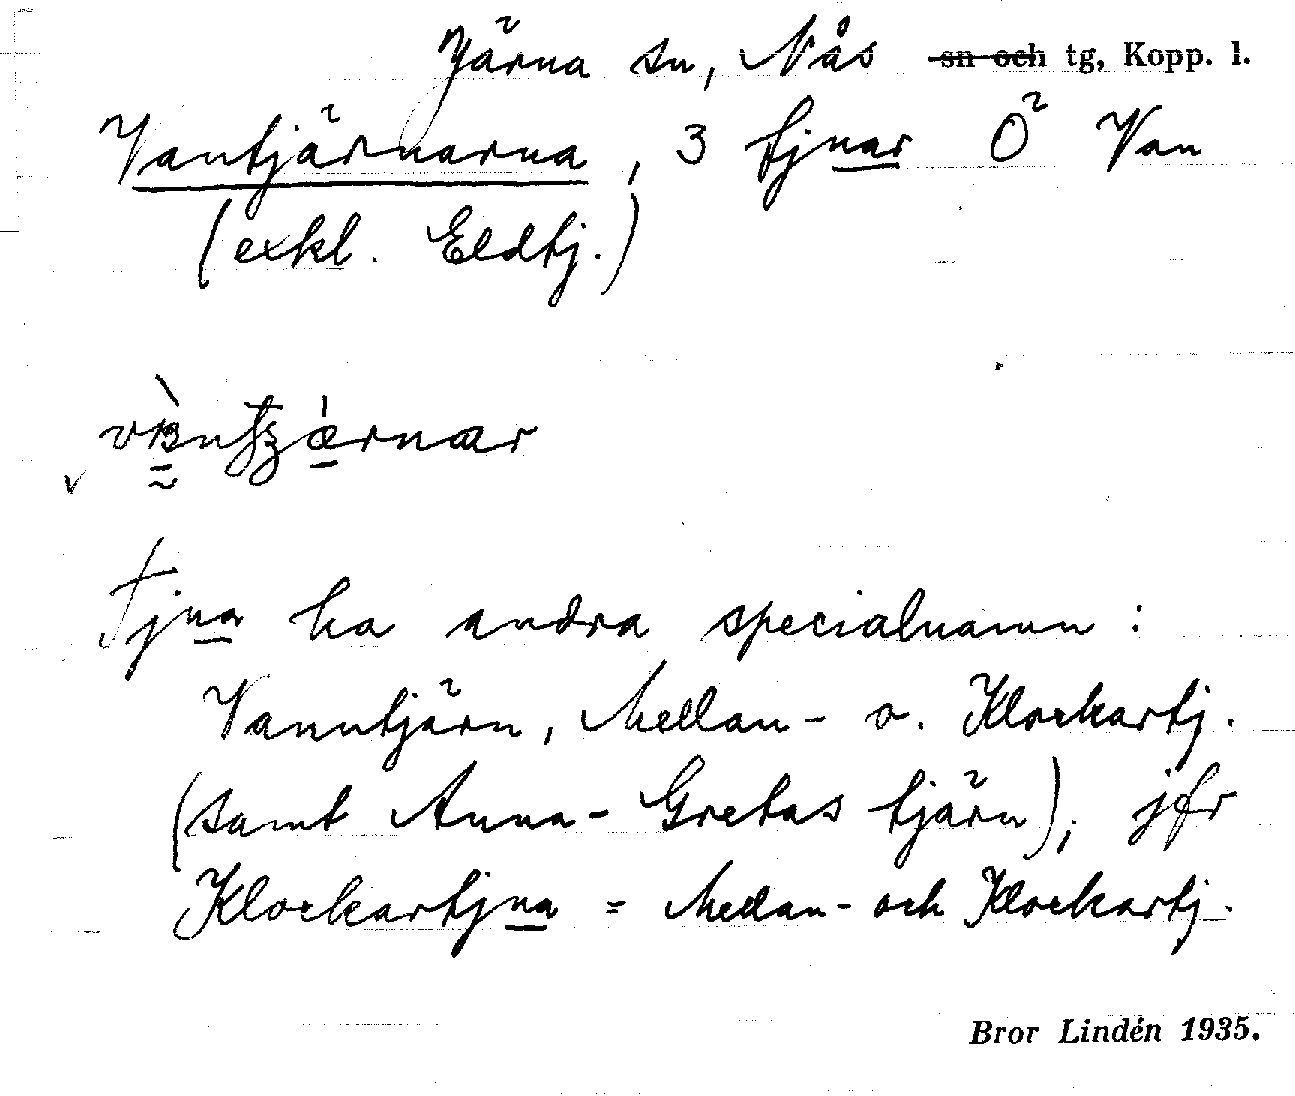 Järna sn, Nås sn och tg, Kopp. l.
Vantjärnarna, 3 tjnar Ö Van
(exkl. Eldtj.)
Tjna ha andra specialnamn:
Vanntjärn, Mellan- o. Klockartj.
(samt Anna-Gretas tjärn); jfr
Klockartjna = Mellan- och Klockartj.
Bror Lindén 1935.